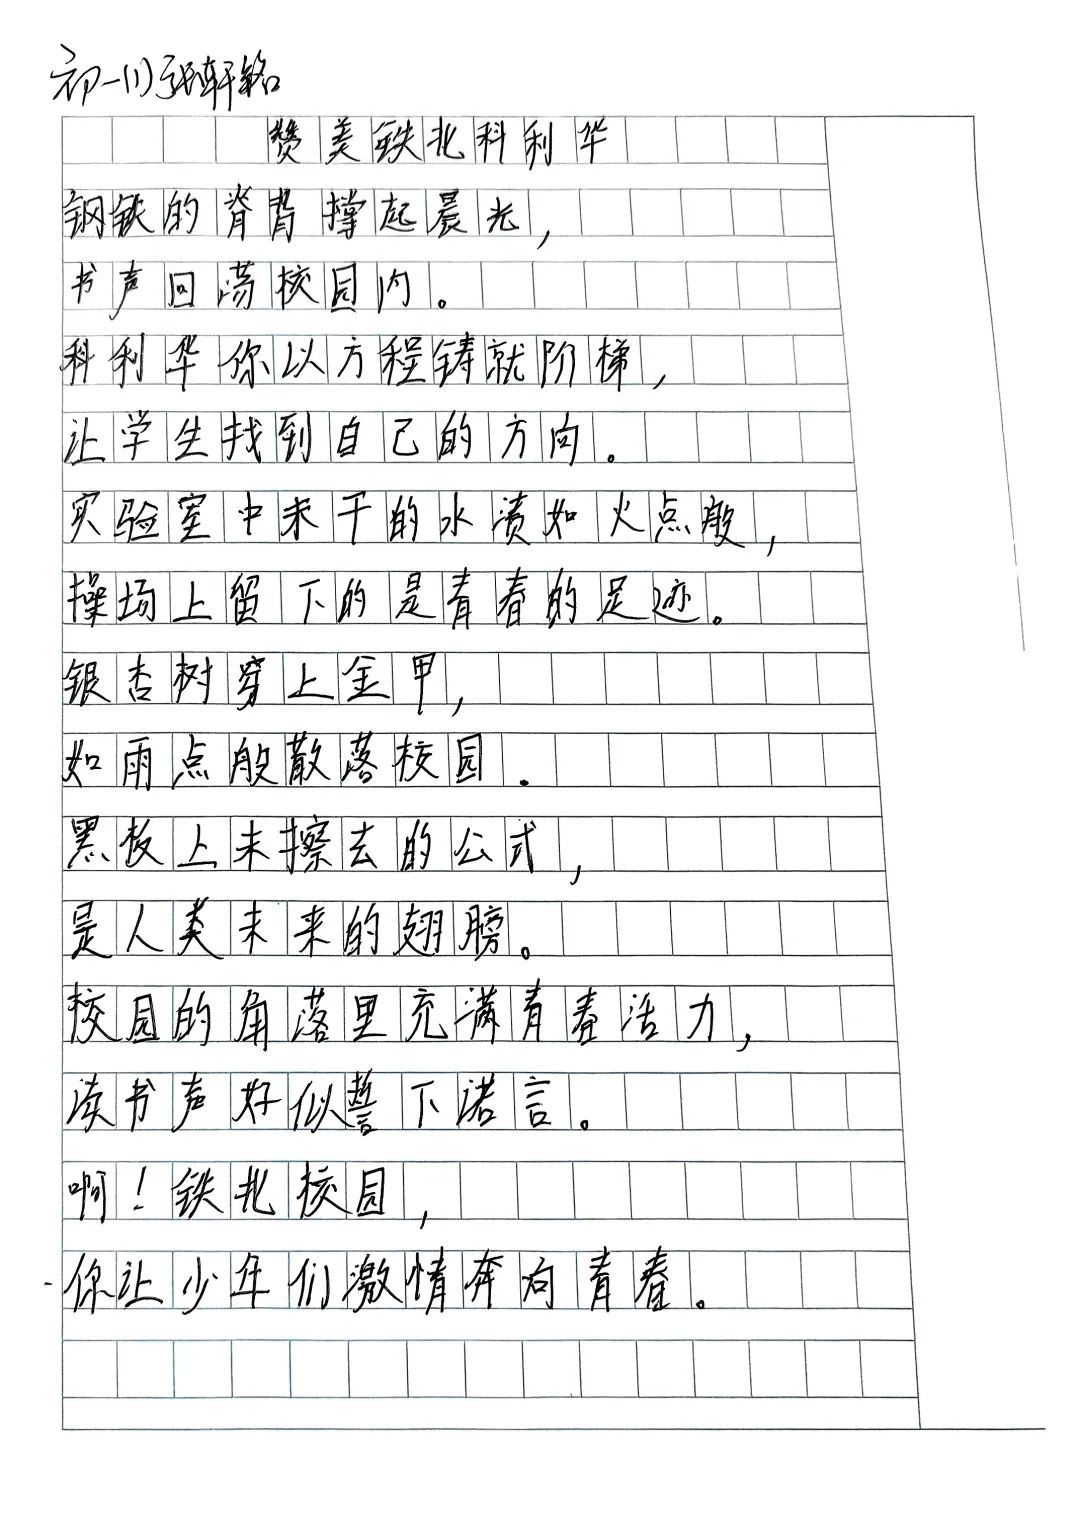 初一(1)张轩铭
赞美铁北科利华
钢铁的脊背撑起晨光，
书声回荡校园内。
科利华你以方程铸就阶梯，
让学生找到自己的方向。
实验室中未干的水渍如火点般，
操场上留下的是青春的足迹。
银杏树穿上金甲，
如雨点般散落校园.
黑板上未擦去的公式，
是人类未来的翅膀。
校园的角落里充满青春活力，
读书声好似誓下诺言。
啊！铁北校园，
你让少年们激情奔向青春。